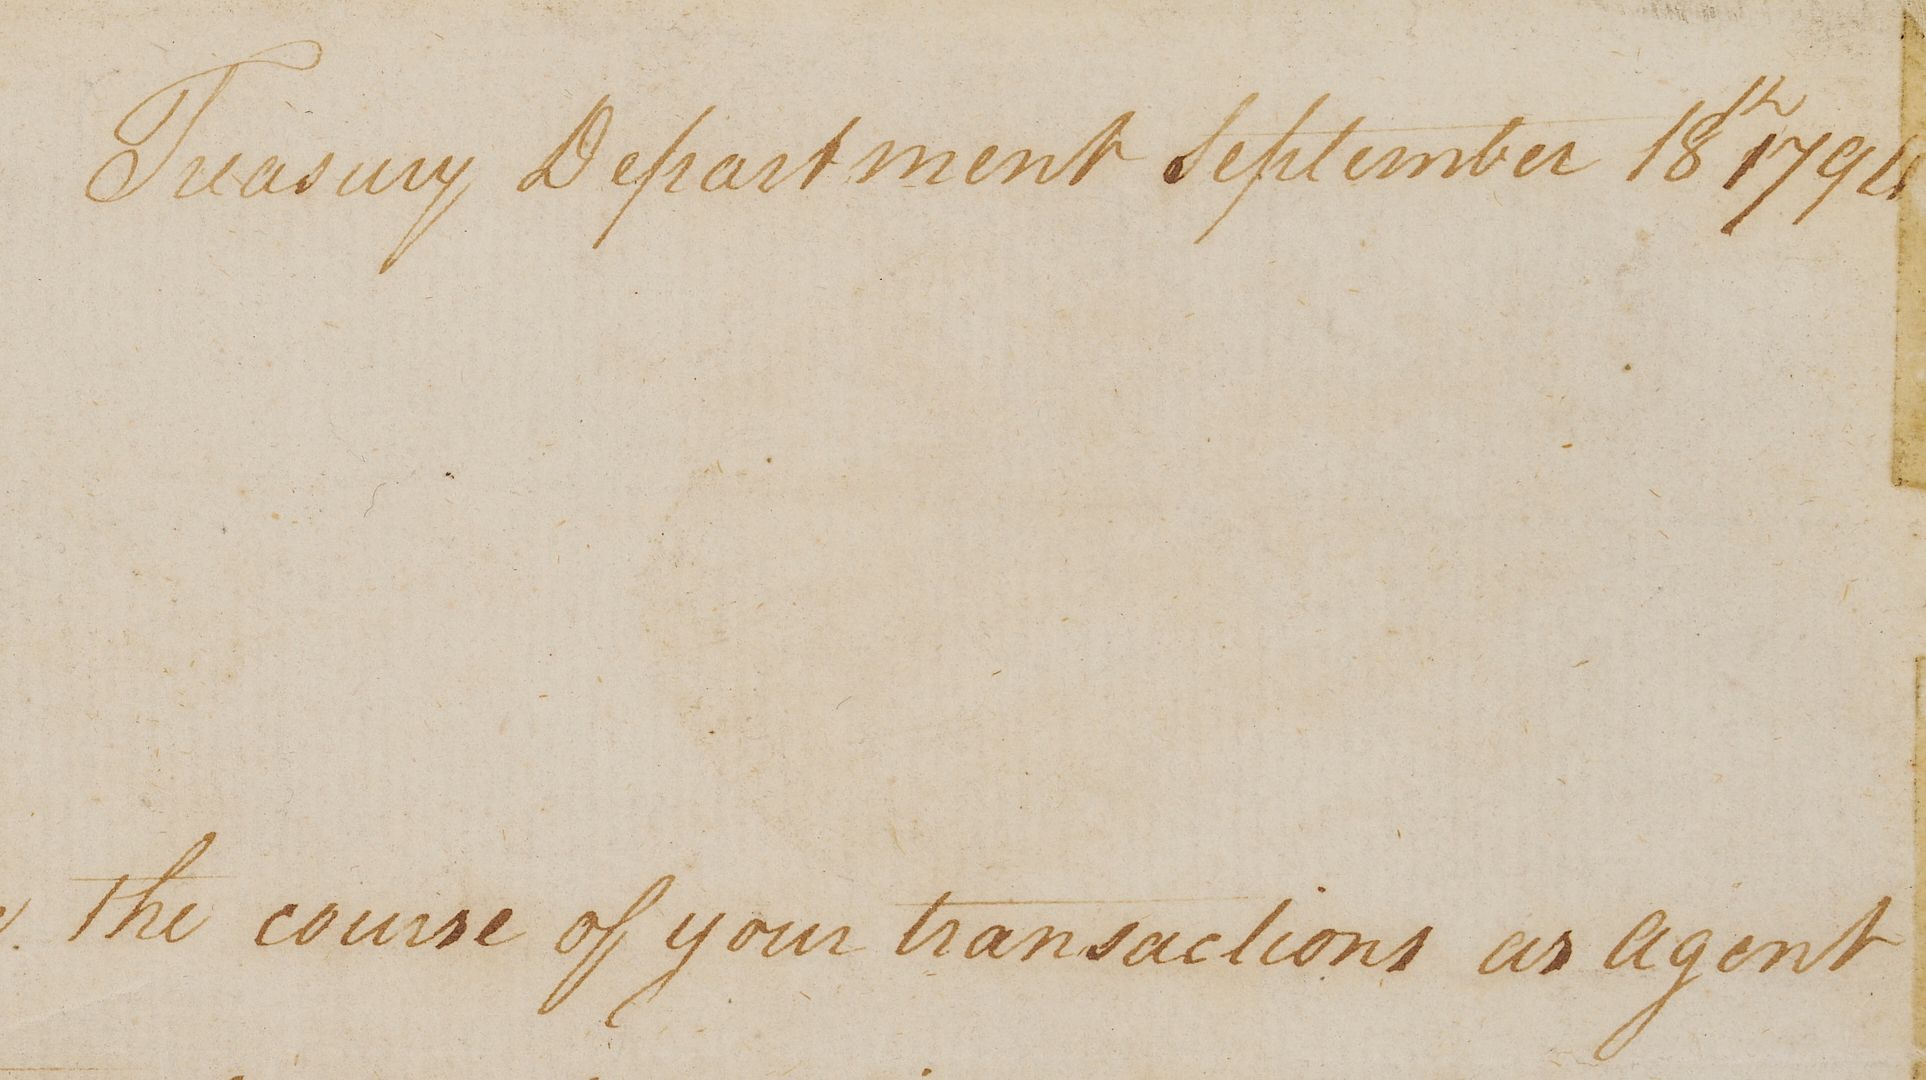 Treasury Department September 18th 1794
the course of your transactions as Agent